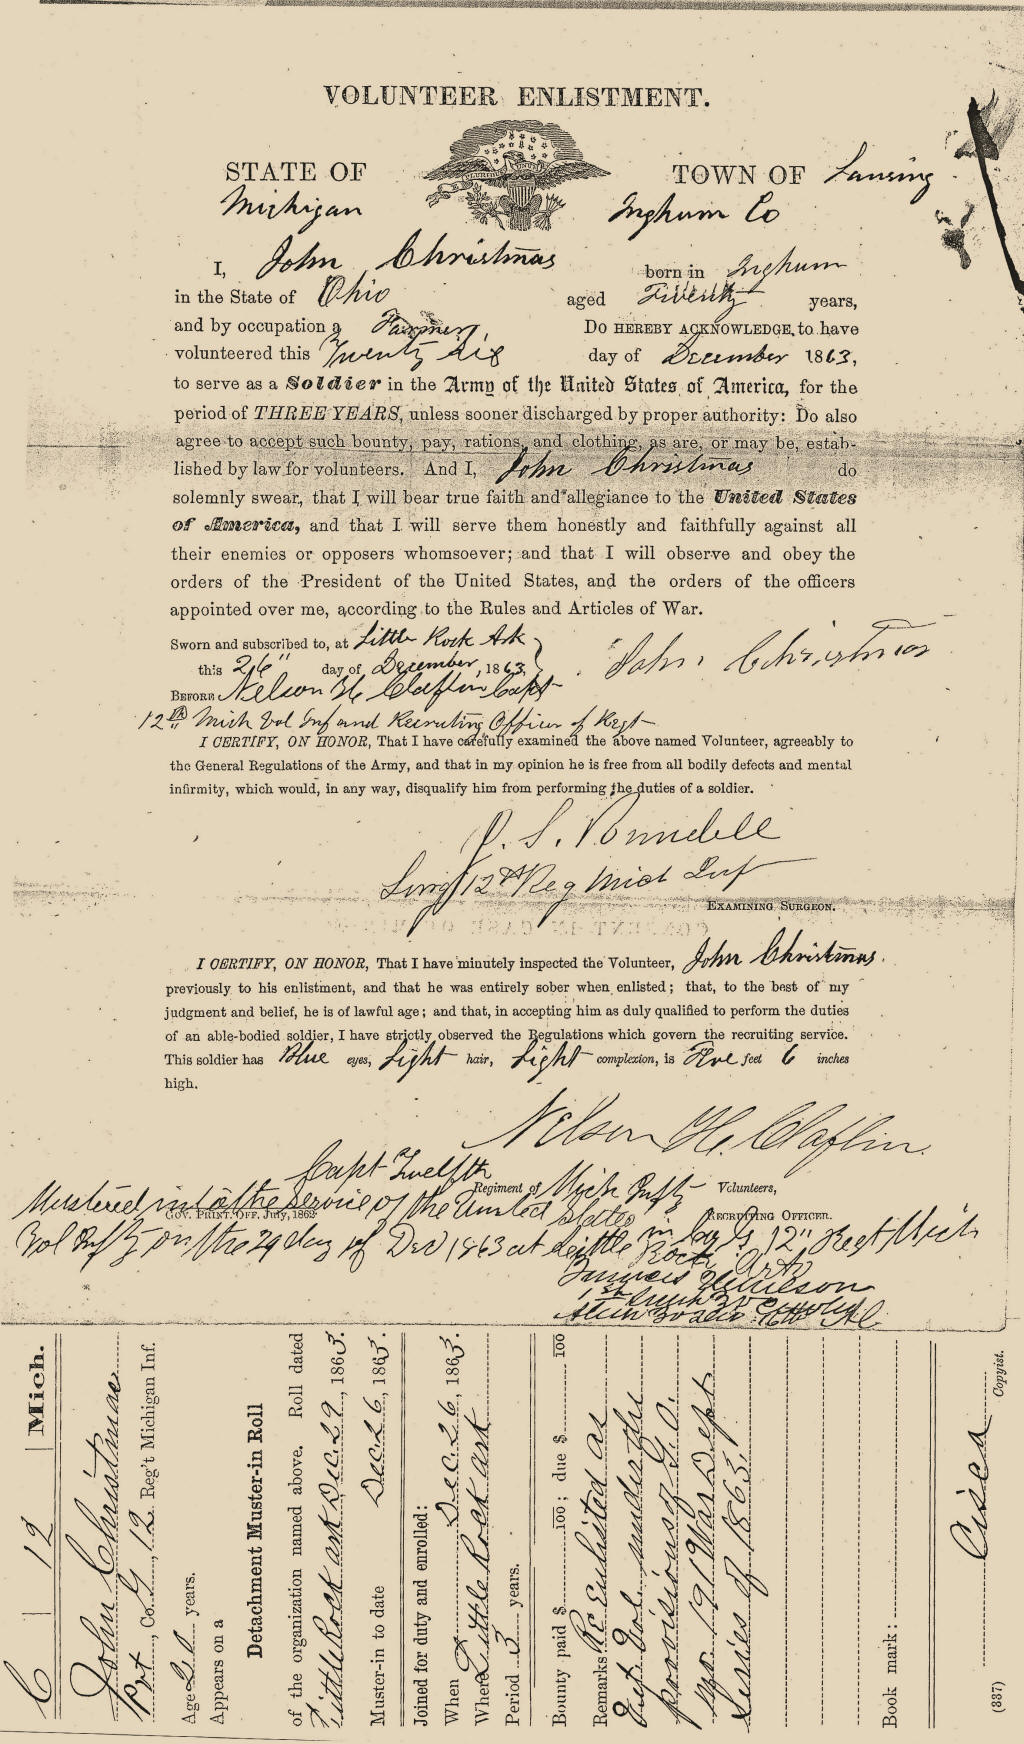 VOLUNTEER ENLISTMENT.
STATE OF
TOWN OF Lansing
Michigan
Ingham Co
I, John Christmas born in Ingham
in the State of Ohio aged Twenty years,
and by occupation a Farmer, Do HEREBY ACKNOWLEDGE to have
volunteered this Twenty Six day of December 1863,
to serve as a Soldier in the Army of the United States of America, for the
period of THREE YEARS, unless sooner discharged by proper authority: Do also
agree to accept such bounty, pay, rations, and clothing, as are, or may be, estab-
lished by law for volunteers. And I, John Christmas do
solemnly swear, that I will bear true faith and allegiance to the United States
of America, and that I will serve them honestly and faithfully against all
their enemies or opposers whomsoever; and that I will observe and obey the
orders of the President of the United States, and the orders of the officers
appointed over me, according to the Rules and Articles of War.
Sworn and subscribed to, at Little Rock Ark
this 26" day of December, 1863
John Christmas
BEFORE Nelson H. Claflin Capt
12th Mich Vol Inf and Recruiting Officer of Regt
I CERTIFY, ON HONOR, That I have carefully examined the above named Volunteer, agreeably to
the General Regulations of the Army, and that in my opinion he is free from all bodily defects and mental
infirmity, which would, in any way, disqualify him from performing the duties of a soldier.
Surg 12th Reg Mich Inf
EXAMINING SURGEON.
I CERTIFY, ON HONOR, That I have minutely inspected the Volunteer, John Christmas.
previously to his enlistment, and that he was entirely sober when enlisted; that, to the best of my
judgment and belief, he is of lawful age; and that, in accepting him as duly qualified to perform the duties
of an able-bodied soldier, I have strictly observed the Regulations which govern the recruiting service.
This soldier has Blue eyes, Light hair, Light complexion, is Five feet 6 inches
high.
Nelson H. Claflin.
Capt Twelfth
Regiment of Mich Infty Volunteers,
RECRUITING OFFICER.
GOV. PRINT. OFF. July, 1862
Mustered into the service of the United States in Co G 12" Regt Mich
Vol Infty on the 29 day of Dec 1863 at Little Rock Ark
C | 12 | Mich.
John Christmas
Pvt, Co. G, 12 Reg't Michigan Inf.
Age 20 years.
Appears on a
Detachment Muster-in Roll
of the organization named above. Roll dated
Little Rock Ark Dec. 29, 1863.
Muster-in to date Dec. 26, 1863.
Joined for duty and enrolled:
When Dec. 26, 1863.
Where Little Rock Ark
Period 3 years.
Bounty paid $ 100; due $ 100
Remarks Re Enlisted as
Vet. Vol. under the
provisions of G.O.
No. 191 War Dept
Series of 1863.
Book mark:
Copyist.
(337)